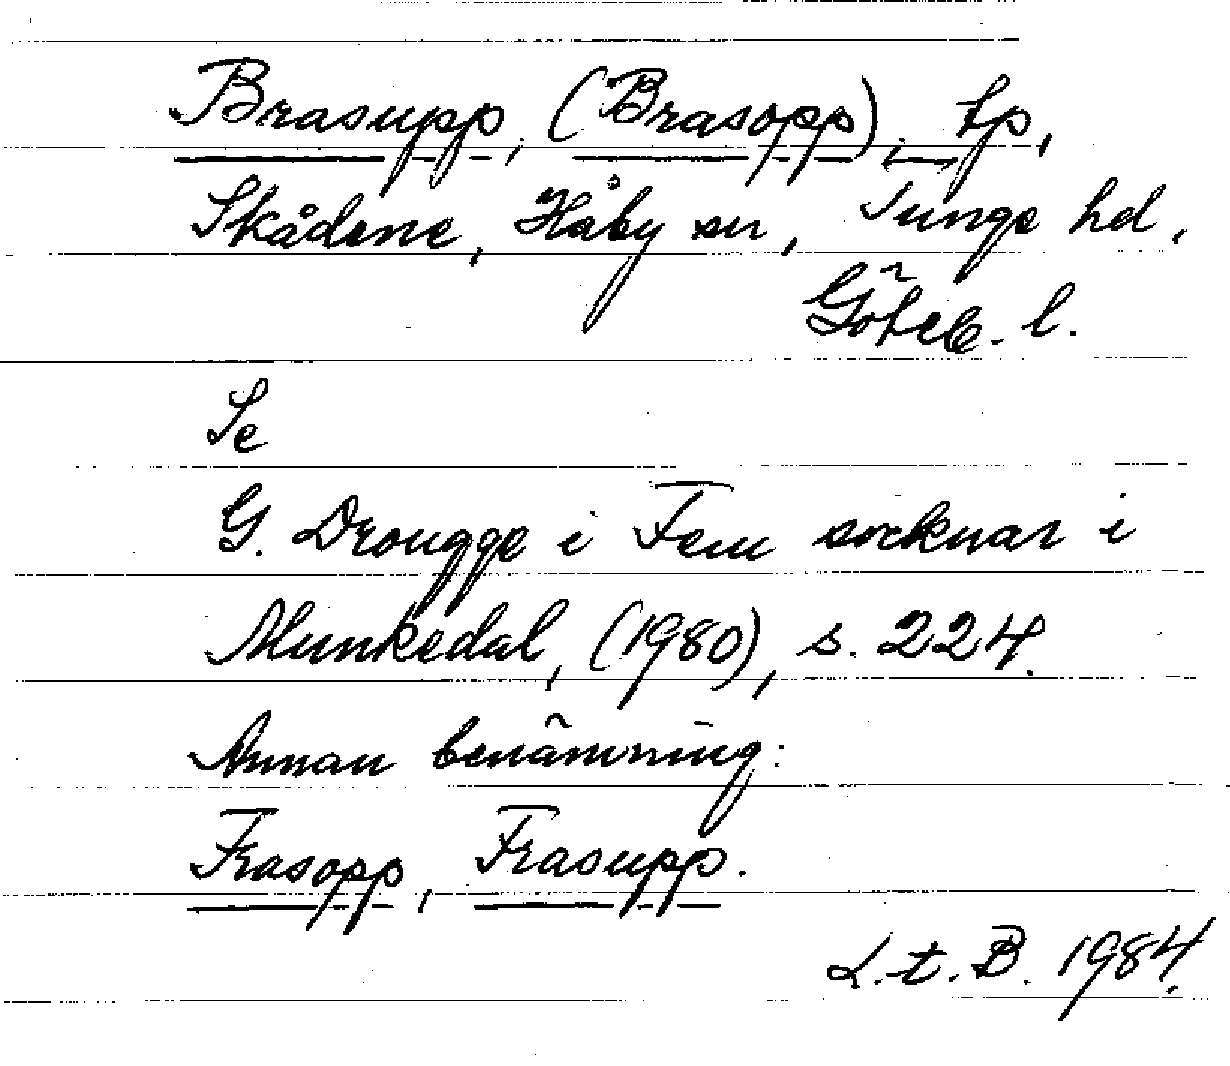 Brasupp, (Brasopp), tp,
Skådene, Håby sn, Tunge hd,
Göteb. l.
Se
G. Drougge i Fem socknar i
Munkedal, (1980), s. 224.
Annan benämning:
Frasopp, Frasupp.
L.t.B. 1984.